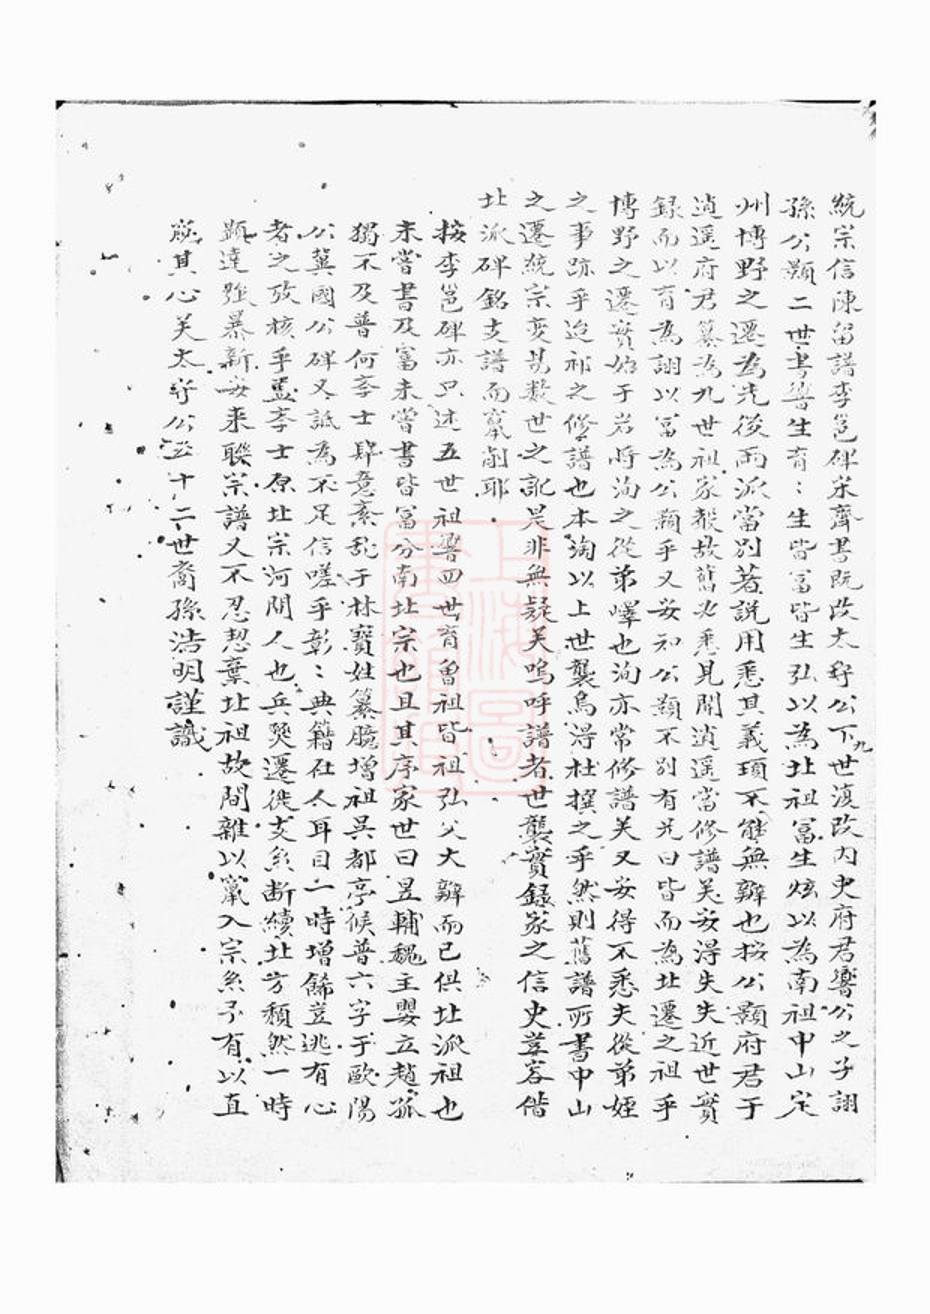 統宗信陳留譜李邕碑宋齊書既改太守公下九世復改内史府君響公之子詡
孫公顯二世書響生育:生皆冨皆生弘以為北祖冨生炫以為南祖中山定
州博野之遷為先後兩派當別著説用悉其義頊不能無辯也按公顯府君于
逍遥府君纂為九世祖家報故舊必悉見聞逍遥當修譜美安得失失近世實
録而以育為詡以冨為公顯乎又安知公顯不別有兄曰皆而為北遷之祖乎
博野之遷實始于岩將洵之從弟嶧也洵亦常修譜美又安得不悉夫從弟姪
之事跡乎迨祁之修譜也本洵以上世襲烏淂杜撰之乎然則舊譜所書中山
之遷統宗変易数世之訛是非無疑美嗚呼譜者世襲實録家之信史豈容偕
北派碑銘支譜而纂削耶
按李邕碑亦只述五世祖響四世育曽祖皆祖弘父大辯而已俱北派祖也
未嘗書及富未嘗書皆冨分南北宗也且其序家世曰昱輔魏主嬰立趙孤
獨不及普何李士肆意紊乱于林寶姓纂臆増祖吳都亭候普六字于歐陽
公冀國公碑又詆為不足信嗟乎彰:典籍在人耳目二時増餙豈逃有心
者之攷核乎盖李士原北宗河間人也兵燹遷徙支糸断續北方頽然一時
顕達強暴新安来聯宗譜又不忍恝棄北祖故間雜以竄入宗糸予有以直
誅其心美太守公五十二世裔孫浩明謹識